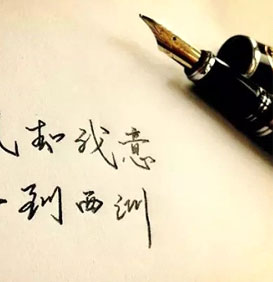 知我意
到西洲